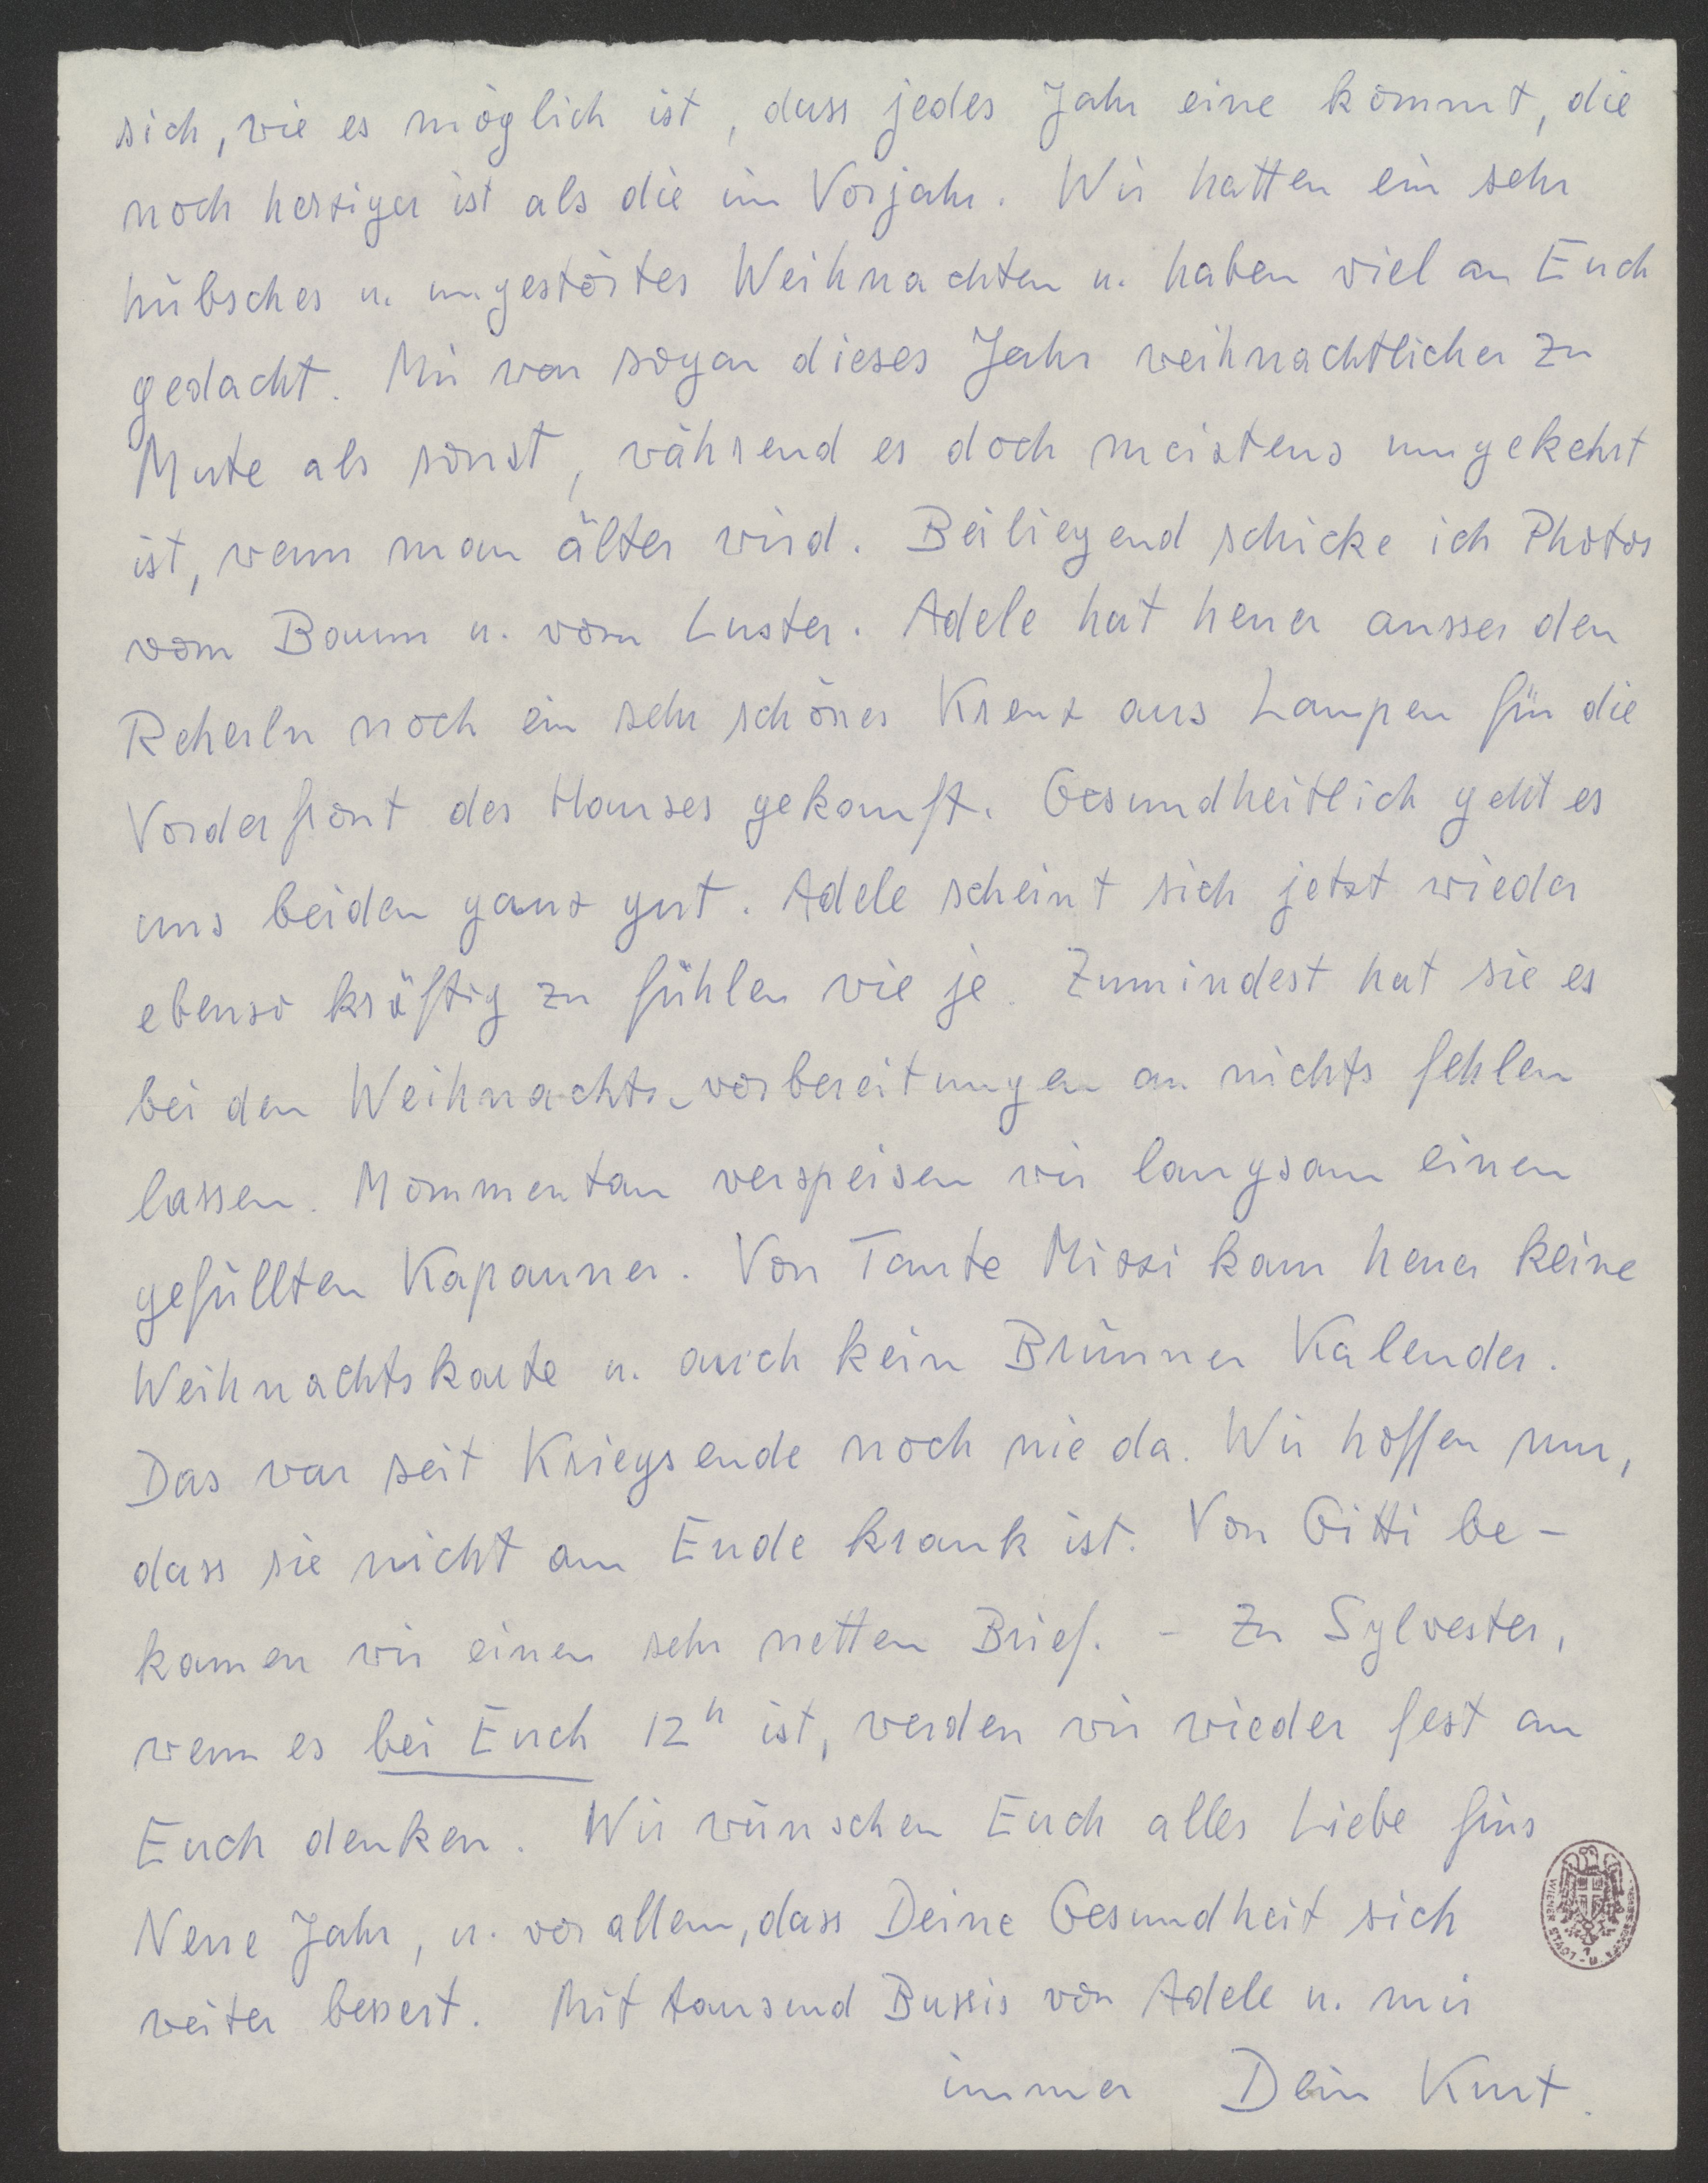 sich, wie es möglich ist, dass jedes Jahr eine kommt, die
noch herziger ist als die im Vorjahr. Wir hatten ein sehr
hübsches u. ungestörtes Weihnachten u. haben viel an Euch
gedacht. Mir war sogar dieses Jahr weihnachtlicher zu
Mute als sonst, während es doch meistens umgekehrt
ist, wenn man älter wird. Beiliegend schicke ich Photos
vom Baum u. vom Luster. Adele hat heuer ausser den
Reherln noch ein sehr schönes Kreuz aus Lampen für die
Vorderfront des Hauses gekauft. Gesundheitlich geht es
uns beiden ganz gut. Adele scheint sich jetzt wieder
ebenso kräftig zu fühlen wie je. Zumindest hat sie es
bei den Weihnachts-vorbereitungen an nichts fehlen
lassen. Mommentan verspeisen wir langsam einen
gefüllten Kapauner. Von Tante Mizzi kam heuer keine
Weihnachtskarte u. auch kein Brünner Kalender.
Das war seit Kriegsende noch nie da. Wir hoffen nur,
dass sie nicht am Ende krank ist. Von Gitti be-
kamen wir einen sehr netten Brief. - Zu Sylvester,
wenn es bei Euch 12h ist, werden wir wieder fest an
Euch denken. Wir wünschen Euch alles Liebe fürs
Neue Jahr, u. vor allem, dass Deine Gesundheit sich
weiter bessert. Mit tausend Bussis von Adele u. mir
immer Dein Kurt.